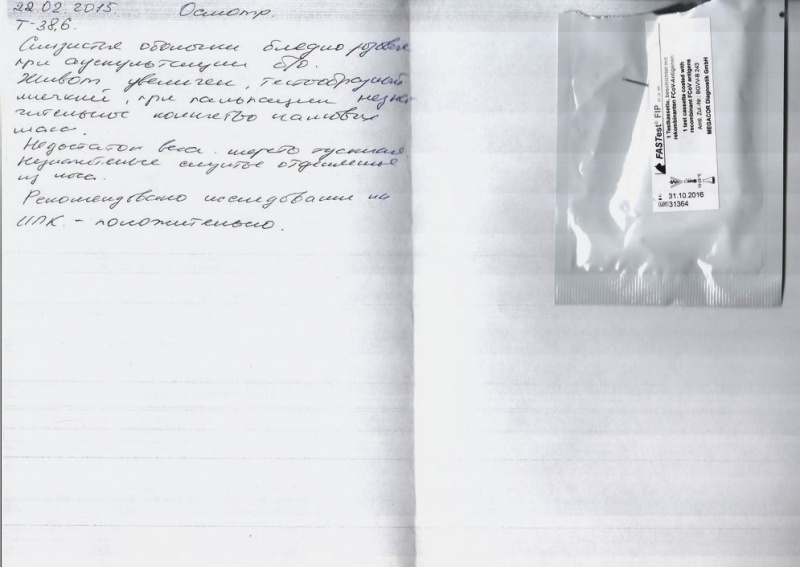 22.02.2015. Осмотр.
Т-38,6.
Слизистые оболочки бледно розовые
при аускультации б/о.
Живот увеличен, тестообразный
мягкий, при пальпации незна-
чительное количество каловых
масс.
Недостаток веса. шерсть тусклая.
Незначительные слизистые
из носа.
Рекомендовано исследование на
ИПК. - положительно.
FASTest® FIP
1 Testkassette, beschichtet mit
rekombinanten FCoV-Antigenen
1 test cassette coated with
recombinant FCoV antigens
Zul.-Nr.: BGVV-B 243
MEGACOR Diagnostik GmbH
31.10.2016
LOT 31364